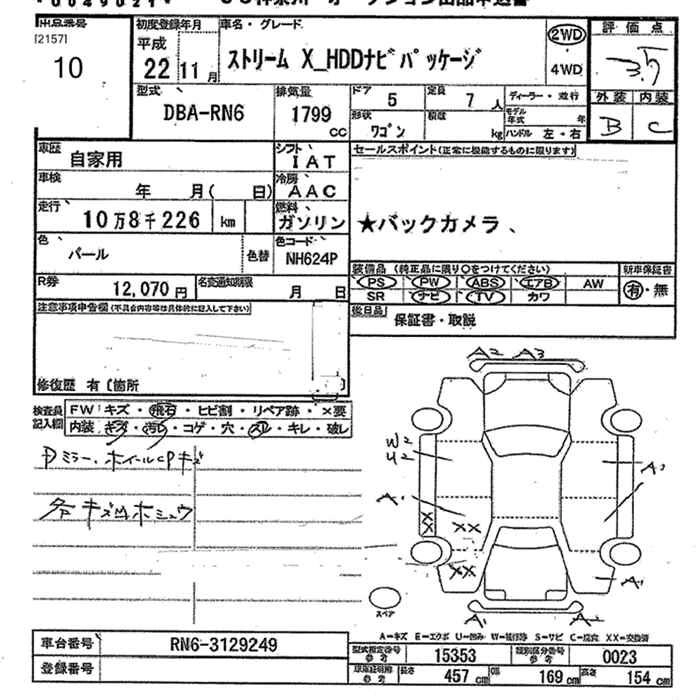 出品番号
[2157]
10
初度登録年月
平成
22 11 月
車名・グレード
ストリーム X_HDDナビパッケージ
2WD
4WD
評価点
3.5
外装 内装
B C
型式
DBA-RN6
排気量
1799
CC
ドア 5
定員 7 人
形状 ワゴン
積載 kg
ディーラー・並行
モデル年式 年
ハンドル 左・右
車歴 自家用
シフト IAT
車検 年 月( 日)
冷房 AAC
走行 10万8千226 km
燃料 ガソリン
色 パール
色替
色コード NH624P
R券 12,070 円
名変通知期限 月 日
セールスポイント(正常に機能するものに限ります)
★バックカメラ、
装備品 (純正品に限り○をつけてください)
PS PW ABS エアB AW
SR ナビ TV カワ
新車保証書
有・無
後日品 保証書・取説
注意事項申告欄(不具合内容等は具体的に記入して下さい)
修復歴 有〔箇所
検査員記入欄
FW キズ・飛石・ヒビ割・リペア跡・×要
内装 キズ・汚れ・コゲ・穴・スレ・キレ・破レ
Pミラー、ホイールCPキズ
各 キズ凹ホシュウ
A2 A3
W2
U2
A1
A1
XX
XX
XX
A1
A1
A2
スペア
A-キズ E-エクボ U-凹み W-補修跡 S-サビ C-腐食 XX-交換済
車台番号 RN6-3129249
登録番号
型式指定番号 参考 15353
類別区分番号 参考 0023
車庫証明用 参考
長さ 457 cm
幅 169 cm
高さ 154 cm